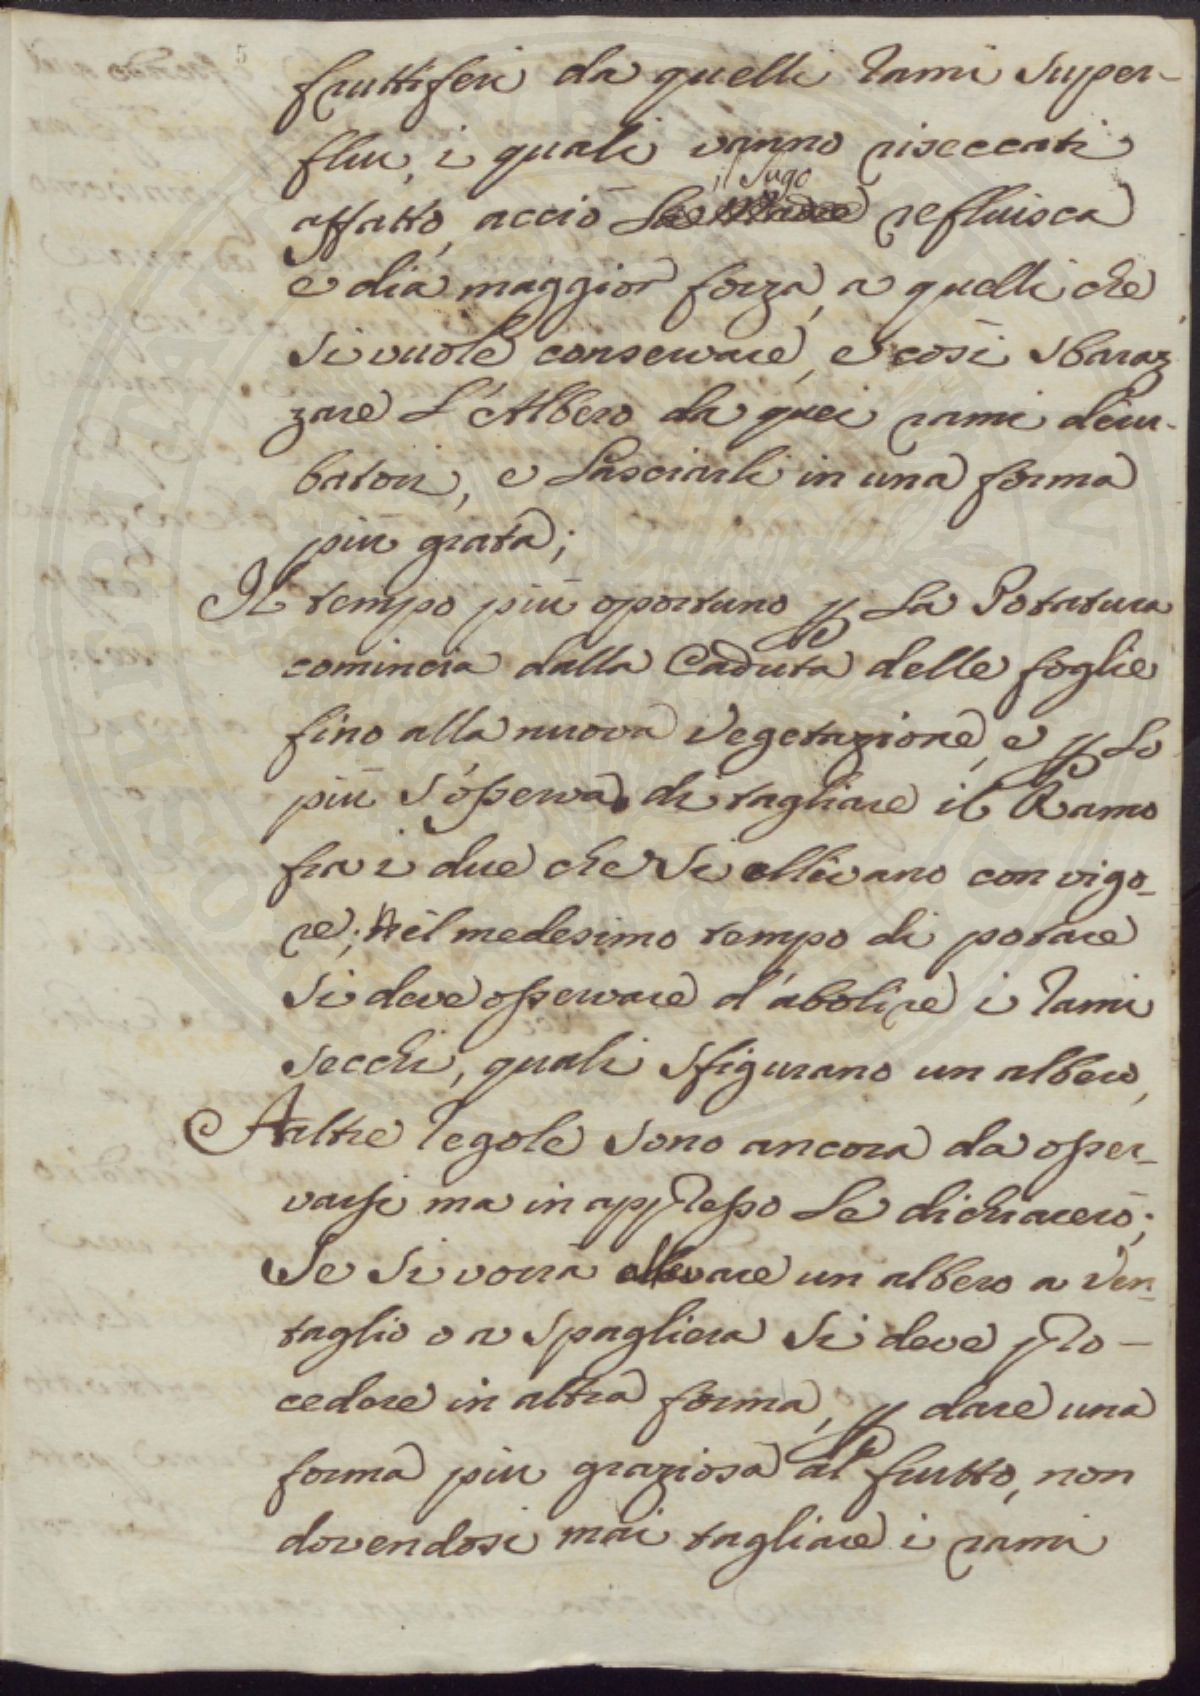 5
fruttiferi da quelli rami super-
flui, i quali vanno riseccati
il Sugo
affatto, acciò refluisca
e dia maggior forza, a quelli che
si vuole conservare, e così sbaraz
zare L'Albero da quei rami distur-
batori, e Lasciarli in una forma
più grata;
Il tempo più oportuno p La Potatura
comincia dalla Caduta delle foglie
fino alla nuova Vegetazione, e p Lo
più s'osserva di tagliare il Ramo
fra i due che si allévano con vigo-
re; Nel medesimo tempo di potare
si deve osservare d'abolire i rami
secchi, quali sfigurano un albero,
Altre regole sono ancora da osser-
varsi ma in appresso Le dichiarerò;
Se si vorrà allevare un albero a Ven-
taglio o a Spagliera si deve pro-
cedere in altra forma, p dare una
forma più graziosa al frutto, non
dovendosi mai tagliare i rami